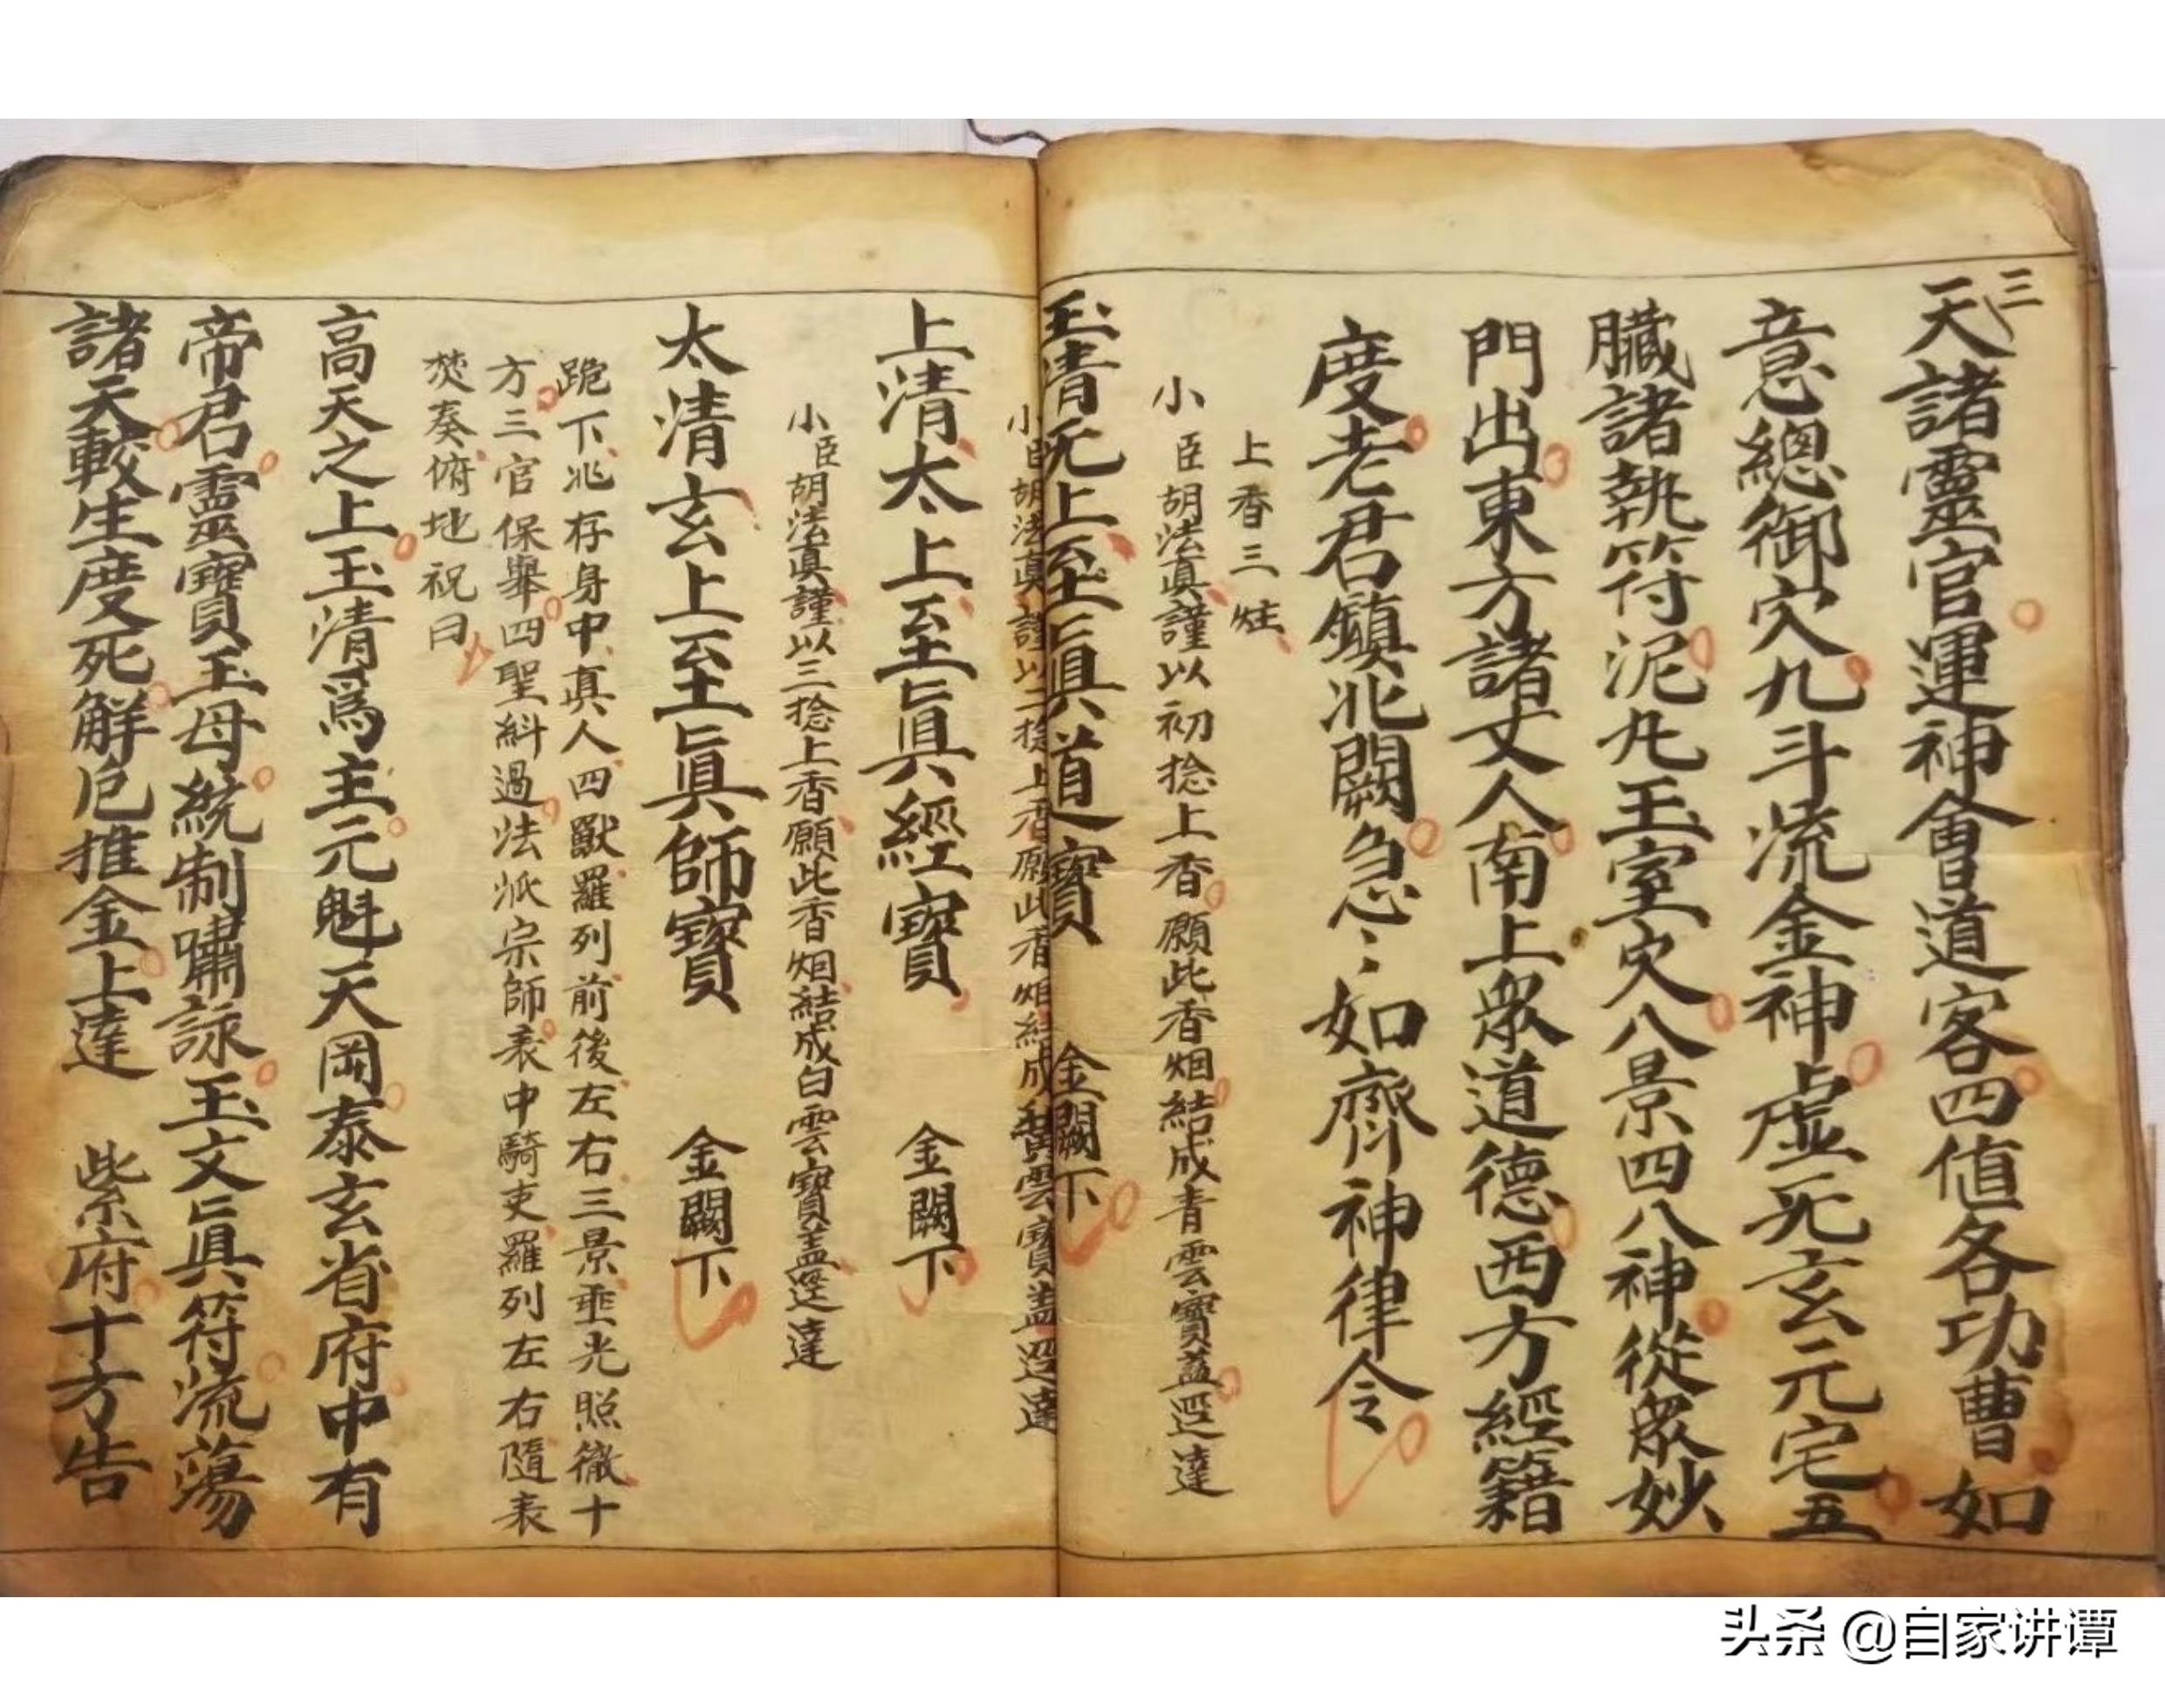 三
天諸靈官運神會道客四值各功曹如
意總御穴九斗流金神虛无玄元宅五
臟諸執符泥丸玉室穴八景四八神從衆妙
門出東方諸丈人南上衆道德西方經籍
度老君鎮北闕急〻如齊神律令
上香三炷
小臣胡法真謹以初捻上香願此香烟結成青雲寶蓋逕達
玉清无上至真道寶 金闕下
小臣胡法真謹以二捻上香願此香烟結成黃雲寶蓋逕達
上清太上至真經寶 金闕下
小臣胡法真謹以三捻上香願此香烟結成白雲寶蓋逕達
太清玄上至真師寶 金闕下
跪下兆存身中真人四獸羅列前後左右三景垂光照徹十
方三官保舉四聖糾過法派宗師表中騎吏羅列左右隨表
焚奏俯地祝曰
高天之上玉清爲主元魁天岡泰玄省府中有
帝君靈寶玉母統制嘯詠玉文真符流蕩
諸天較生度死解厄推金上達 紫府十方告
头条 @自家讲谭